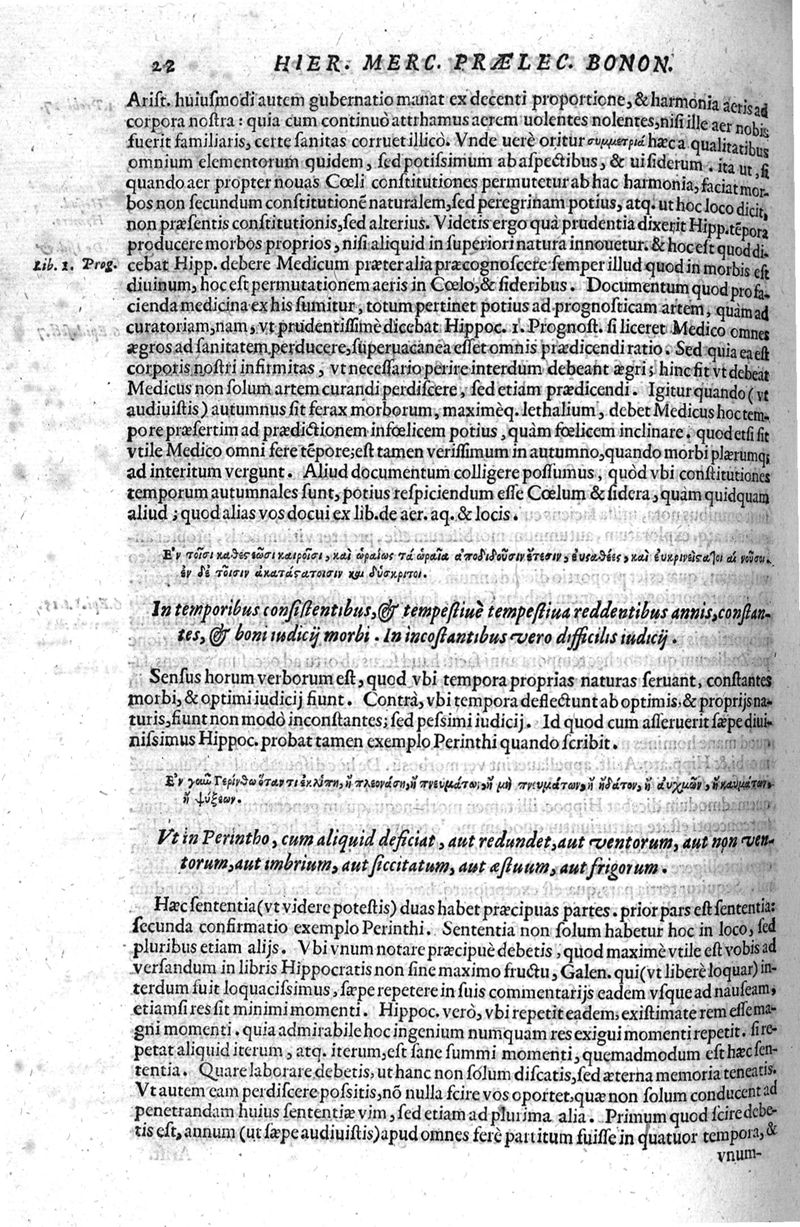 22 HIER. MERC. PRÆLEC. BONON.
Arist. huiusmodi autem gubernatio manat ex decenti proportione, & harmonia aeris ad
corpora nostra: quia cum continuò attrhamus aerem uolentes nolentes, nisi ille aer nobis
fuerit familiaris, certe sanitas corruet illicò. Vnde uerè oritur συμμετριὰ hæc a qualitatibus
omnium elementorum quidem, sed potissimum ab aspectibus, & ui siderum. ita ut, si
quando aer propter nouas Cœli constitutiones permutetur ab hac harmonia, faciat mor-
bos non secundum constitutionē naturalem, sed peregrinam potius, atq. ut hoc loco dicit,
non præsentis constitutionis, sed alterius. Videtis ergo quà prudentia dixerit Hipp. tēpora
producere morbos proprios, nisi aliquid in superiori natura innouetur. & hoc est quod di-
Lib. 1. Prog. cebat Hipp. debere Medicum præter alia præcognoscere semper illud quod in morbis est
diuinum, hoc est permutationem aeris in Cœlo, & sideribus. Documentum quod pro fa-
cienda medicina ex his sumitur, totum pertinet potius ad prognosticam artem, quàm ad
curatoriam, nam, vt prudentissimè dicebat Hippoc. 1. Prognost. si liceret Medico omnes
ægros ad sanitatem perducere, superuacanea esset omnis prædicendi ratio. Sed quia ea est
corporis nostri infirmitas, vt necessario perire interdum debeant ægri; hinc fit vt debeat
Medicus non solum artem curandi perdiscere, sed etiam prædicendi. Igitur quando (vt
audiuistis) autumnus sit ferax morborum, maximèq. lethalium, debet Medicus hoc tem-
pore præsertim ad prædictionem infœlicem potius, quàm fœlicem inclinare. quod etsi sit
vtile Medico omni fere tēpore; est tamen verissimum in autumno, quando morbi plærumq;
ad interitum vergunt. Aliud documentum colligere possumus, quòd vbi constitutiones
temporum autumnales sunt, potius respiciendum esse Cœlum & sidera, quàm quidquam
aliud; quod alias vos docui ex lib. de aer. aq. & locis.
Ε'ν τοῖσι καθεςεῶσι καιροῖσι, καὶ ὡραίως τὰ ὡραῖα ἀποδιδοῦσιν ἔτεσιν, ἐυςαθέες, καὶ ἐυκρινεῖς αἱ νοῦσοι.
ἐν δὲ τοῖσιν ἀκατάςατοισιν καὶ δύσκριτοι.
In temporibus consistentibus, & tempestiuè tempestiua reddentibus annis, constan-
tes, & boni iudicij morbi. In incōstantibus vero difficilis iudicij.
Sensus horum verborum est, quod vbi tempora proprias naturas seruant, constantes
morbi, & optimi iudicij fiunt. Contrà, vbi tempora deflectunt ab optimis, & proprijs na-
turis, fiunt non modò inconstantes; sed pessimi iudicij. Id quod cum asseruerit sæpe diui-
nissimus Hippoc. probat tamen exemplo Perinthi quando scribit.
ἢ πλεονάσῃ, ἢ πνευμάτων, ἢ μὴ πνευμάτων, ἢ ἢ αὐχμῶν, ἢ καυμάτων,
ἢ ψύξεων.
Vt in Perintho, cum aliquid deficiat, aut redundet, aut ventorum, aut non ven-
torum, aut imbrium, aut siccitatum, aut æstuum, aut frigorum.
Hæc sententia (vt videre potestis) duas habet præcipuas partes. prior pars est sententia:
secunda confirmatio exemplo Perinthi. Sententia non solum habetur hoc in loco, sed
pluribus etiam alijs. Vbi vnum notare præcipuè debetis, quod maximè vtile est vobis ad
versandum in libris Hippocratis non sine maximo fructu, Galen. qui (vt liberè loquar) in-
terdum fuit loquacissimus, sæpe repetere in suis commentarijs eadem vsque ad nauseam,
etiamsi res sit minimi momenti. Hippoc. verò, vbi repetit eadem, existimate rem esse ma-
gni momenti. quia admirabile hoc ingenium numquam res exigui momenti repetit. si re-
petat aliquid iterum, atq. iterum, est sane summi momenti, quemadmodum est hæc sen-
tentia. Quare laborare debetis, ut hanc non solum discatis, sed æterna memoria teneatis.
Vt autem eam perdiscere possitis, nō nulla scire vos oportet, quæ non solum conducent ad
penetrandam huius sententiæ vim, sed etiam ad plurima alia. Primum quod scire debe-
tis est, annum (ut sæpe audiuistis) apud omnes ferè partitum fuisse in quatuor tempora, &
vnum-